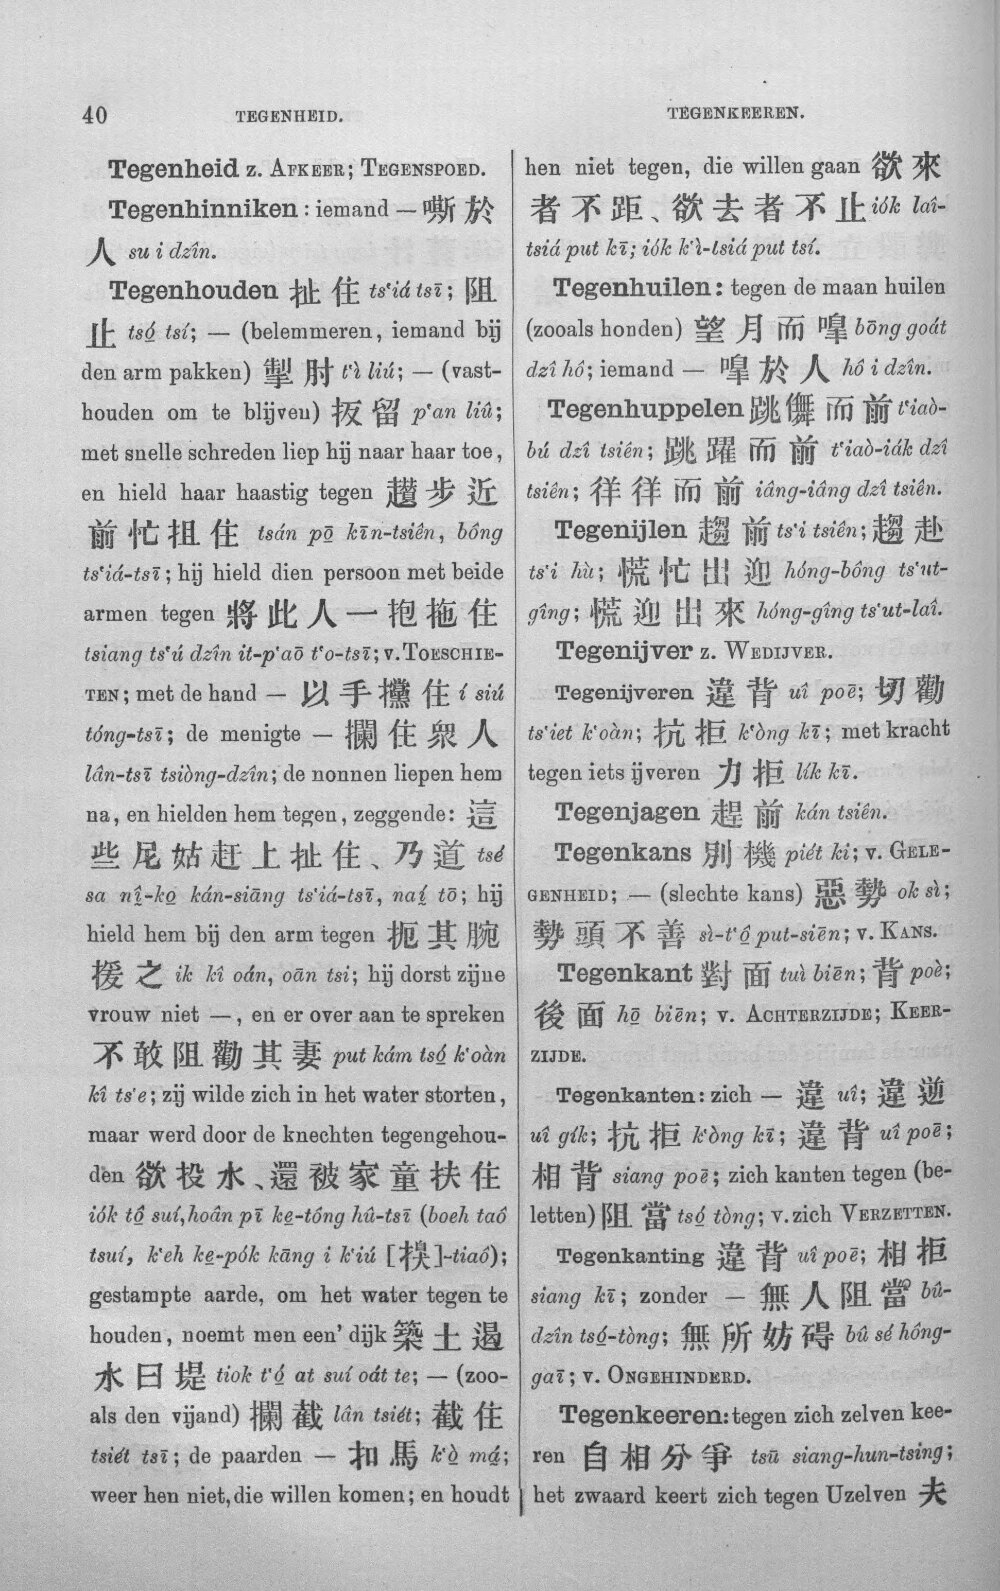 40 TEGENHEID. TEGENKEEREN.
Tegenheid z. AFKEER; TEGENSPOED.
Tegenhinniken: iemand — 嘶於
人 su i dzîn.
Tegenhouden 扯住 ts‘iá tsī; 阻
止 tsó̤ tsí; — (belemmeren, iemand bij
den arm pakken) 掣肘 t‘ì liú; — (vast-
houden om te blijven) 扳留 p‘an liû;
met snelle schreden liep hij naar haar toe,
en hield haar haastig tegen 趲步近
前忙扭住 tsán pō̤ kīn-tsiên, bông
ts‘iá-tsī; hij hield dien persoon met beide
armen tegen 將此人一抱拖住
tsiang ts‘ú dzîn it-p‘aō t‘o-tsī; v. TOESCHIE-
TEN; met de hand — 以手攩住 í siú
tóng-tsī; de menigte — 攔住衆人
lân-tsī tsiòng-dzîn; de nonnen liepen hem
na, en hielden hem tegen, zeggende: 這
些尼姑赶上扯住、乃道 tsé
sa nî̤-ko̤ kán-siāng ts‘iá-tsī, naí̤ tō; hij
hield hem bij den arm tegen 扼其腕
援之 ik kî oán, oān tsi; hij dorst zijne
vrouw niet —, en er over aan te spreken
不敢阻勸其妻 put kám tsó̤ k‘oàn
kî ts‘e; zij wilde zich in het water storten,
maar werd door de knechten tegengehou-
den 欲投水、還被家童扶住
iók tô̤ suí, hoân pī ke̤-tóng hû-tsī (boeh taô
tsuí, k‘eh ke̤-pók kāng i k‘iú [㨒]-tiaô);
gestampte aarde, om het water tegen te
houden, noemt men een’ dijk 築土遏
水曰堤 tiok t‘ó̤ at suí oát te; — (zoo-
als den vijand) 攔截 lân tsiét; 截住
tsiét tsī; de paarden — 扣馬 k‘ò̤ má̤;
weer hen niet, die willen komen; en houdt
hen niet tegen, die willen gaan 欲來
者不距、欲去者不止 iók laî-
tsiá put kī; iók k‘ì-tsiá put tsí.
Tegenhuilen: tegen de maan huilen
(zooals honden) 望月而嘷 bōng goát
dzî hô; iemand — 嘷於人 hô i dzîn.
Tegenhuppelen 跳儛而前 t‘iaò-
bú dzî tsiên; 跳躍而前 t‘iaò-iák dzî
tsiên; 徉徉而前 iâng-iâng dzî tsiên.
Tegenijlen 趨前 ts‘i tsiên; 趨赴
ts‘i hù; 慌忙出迎 hóng-bông ts‘ut-
gîng; 慌迎出來 hóng-gîng ts‘ut-laî.
Tegenijver z. WEDIJVER.
Tegenijveren 違背 uî poē; 切勸
ts‘iet k‘oàn; 抗拒 k‘òng kī; met kracht
tegen iets ijveren 力拒 lík kī.
Tegenjagen 趕前 kán tsiên.
Tegenkans 別機 piét ki; v. GELE-
GENHEID; — (slechte kans) 惡勢 ok sì;
勢頭不善 sì-t‘ô̤ put-siēn; v. KANS.
Tegenkant 對面 tuì biēn; 背 poè;
後面 hō̤ biēn; v. ACHTERZIJDE; KEER-
ZIJDE.
Tegenkanten: zich — 違 uî; 違逆
uî gík; 抗拒 k‘òng kī; 違背 uî poē;
相背 siang poē; zich kanten tegen (be-
letten) 阻當 tsó̤ tòng; v. zich VERZETTEN.
Tegenkanting 違背 uî poē; 相拒
siang kī; zonder — 無人阻當 bû-
dzîn tsó̤-tòng; 無所妨碍 bû sé hông-
gaī; v. ONGEHINDERD.
Tegenkeeren: tegen zich zelven kee-
ren 自相分爭 tsū siang-hun-tsing;
het zwaard keert zich tegen Uzelven 夫